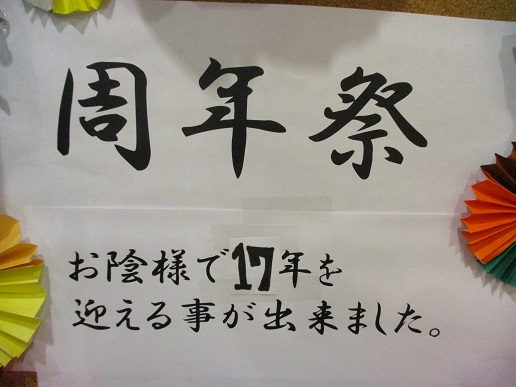 周年祭
お陰様で17年を
迎える事が出来ました。